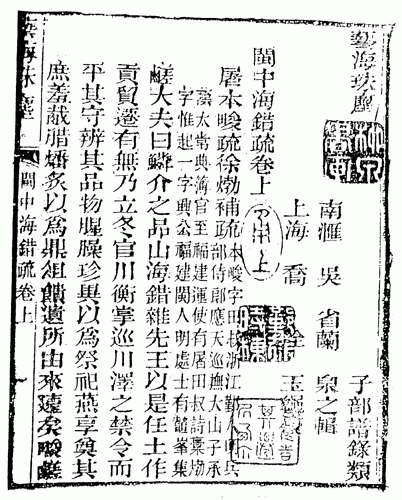 藝海珠塵
子部譜錄類
南滙 吳省蘭 泉之輯
上海 喬
閩中海錯疏卷上
屠本畯疏徐𤊹補疏
本畯字田叔浙江鄞
部侍郎應天巡撫大山子承
廕太常典簿官至福建運使有屠田叔詩藁𤊹
字惟起一字興公福建閩人明處士有鼇峯集
鹺大夫曰鱗介之品山海錯雜先王以是任土作
貢貿遷有無乃立冬官川衡掌巡川澤之禁令而
平其守辨其品物腥臊珍異以為祭祀燕享奠其
庶羞胾腊燔炙以為鼎俎饋遺所由來遠矣畯鹺
藝海珠塵
閩中海錯疏卷上